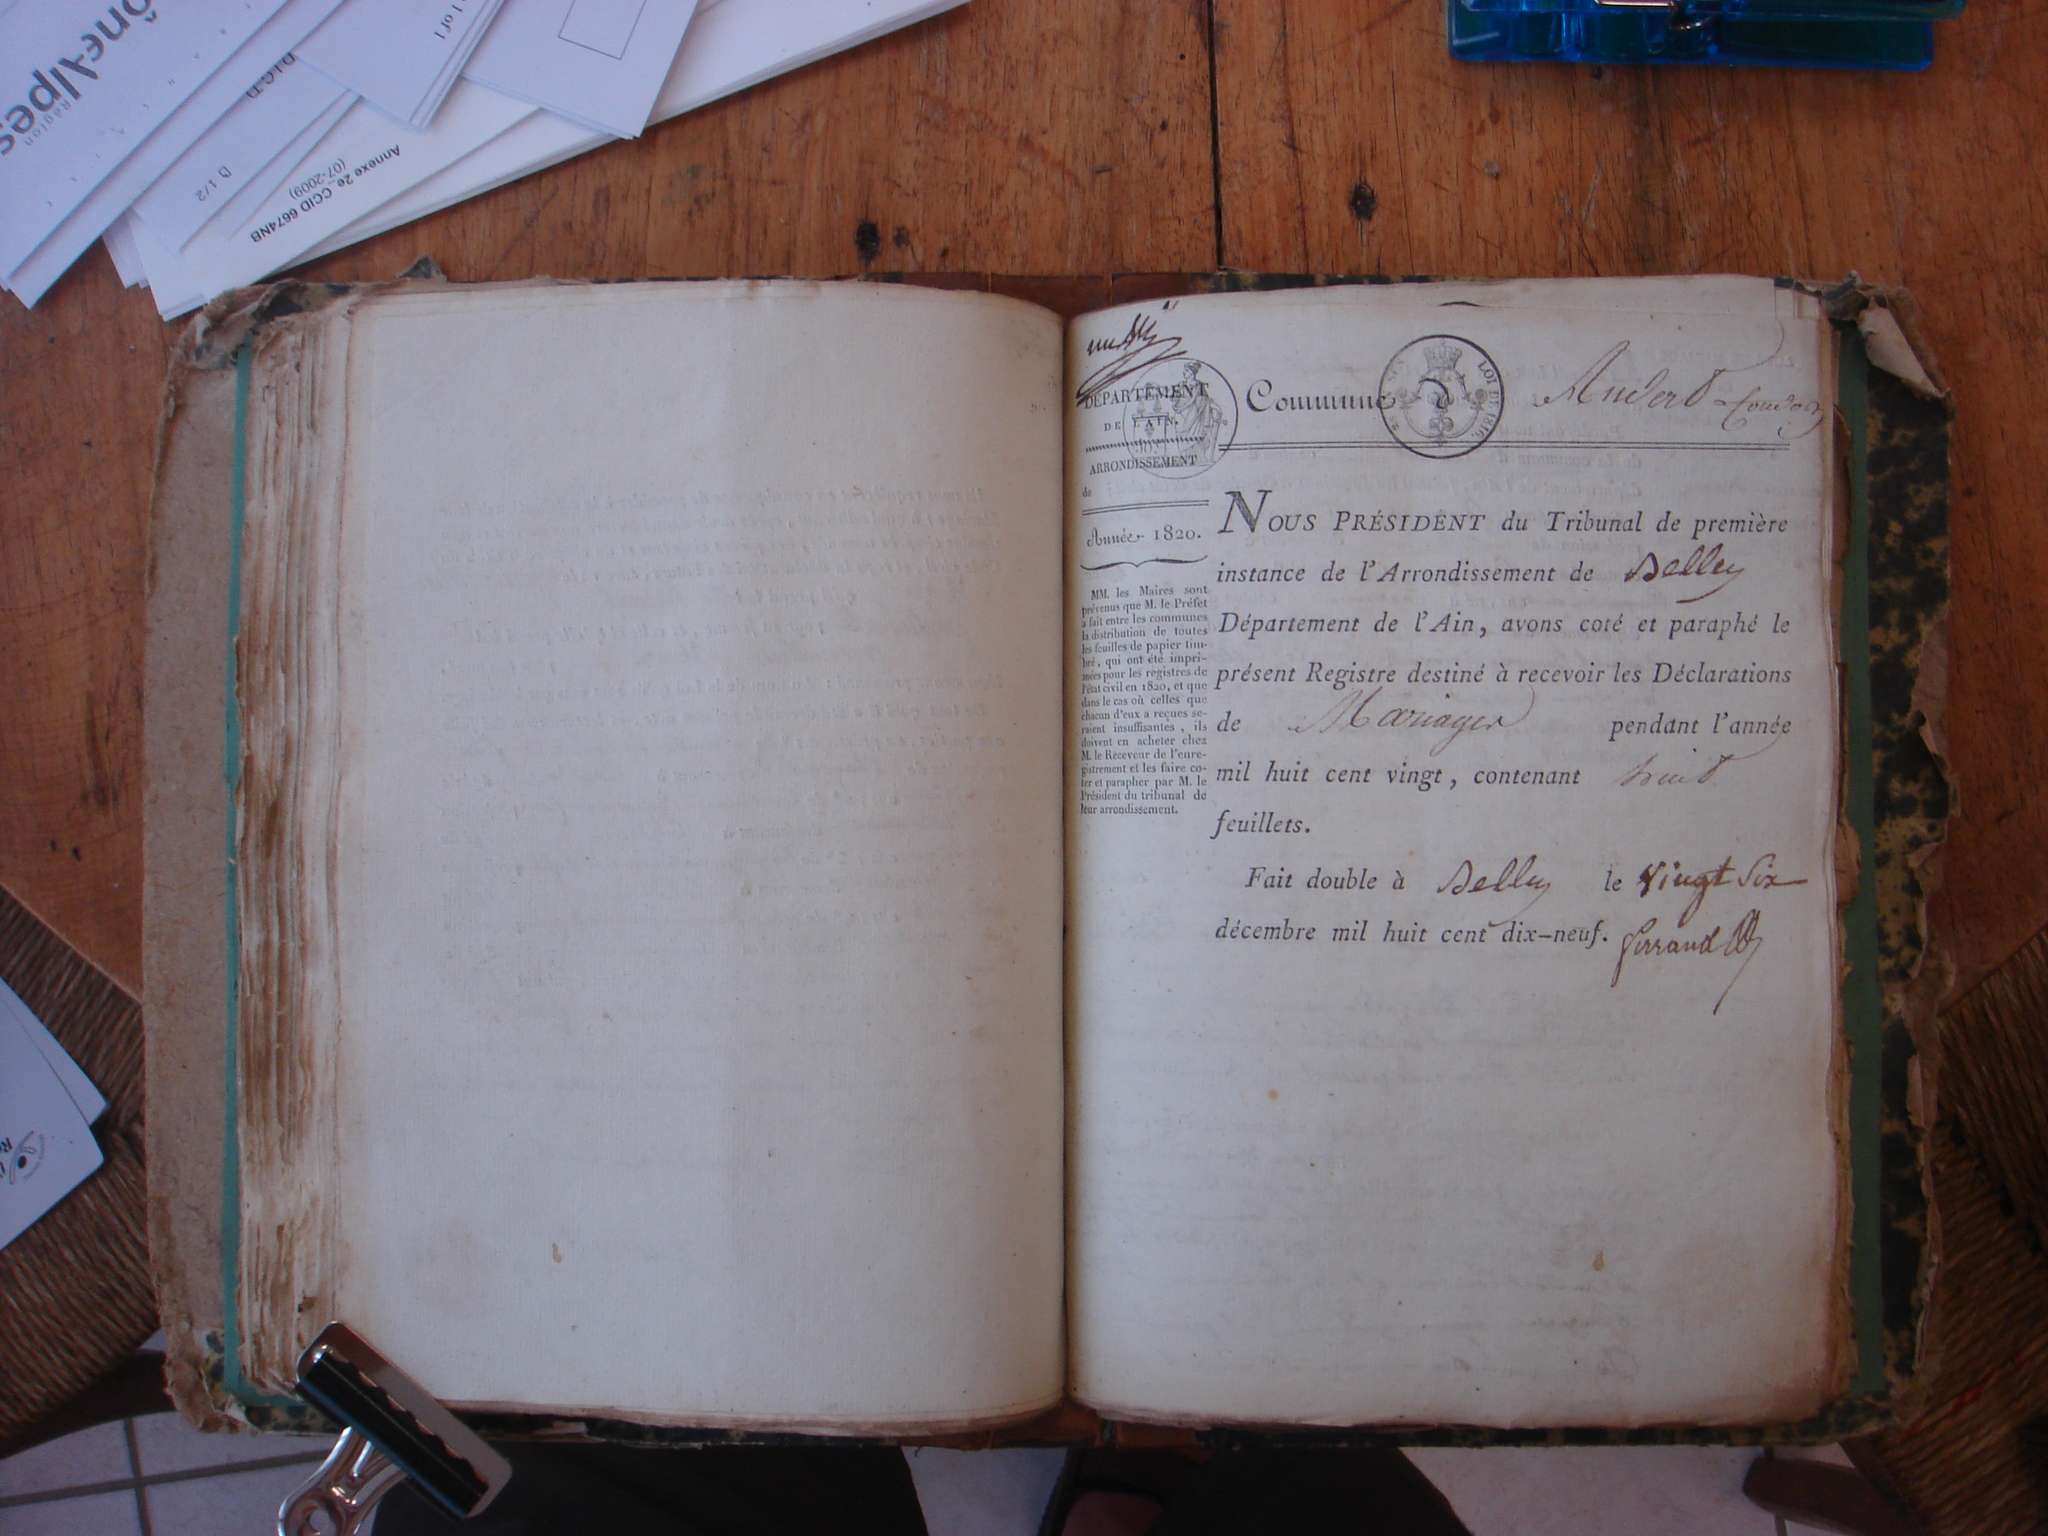 ône-Alpes
Région
1 of 1
D 1/2
Annexe 2e_CCID 6674NB
(07-2009)
DÉPARTEMENT
DE L'AIN.
ARRONDISSEMENT
de
Année 1820.
MM. les Maires sont
prévenus que M. le Préfet
a fait entre les communes
la distribution de toutes
les feuilles de papier tim-
bré, qui ont été impri-
mées pour les registres de
l'état civil en 1820, et que
dans le cas où celles que
chacun d'eux a reçues se-
raient insuffisantes, ils
doivent en acheter chez
M. le Receveur de l'enre-
gistrement et les faire co-
ter et parapher par M. le
Président du tribunal de
leur arrondissement.
Commune d Andert-Condon
LOI DE 1816.
NOUS PRÉSIDENT du Tribunal de première
instance de l'Arrondissement de Belley
Département de l'Ain, avons coté et paraphé le
présent Registre destiné à recevoir les Déclarations
de Mariages pendant l'année
mil huit cent vingt, contenant huit
feuillets.
Fait double à Belley le vingt Six
décembre mil huit cent dix-neuf.